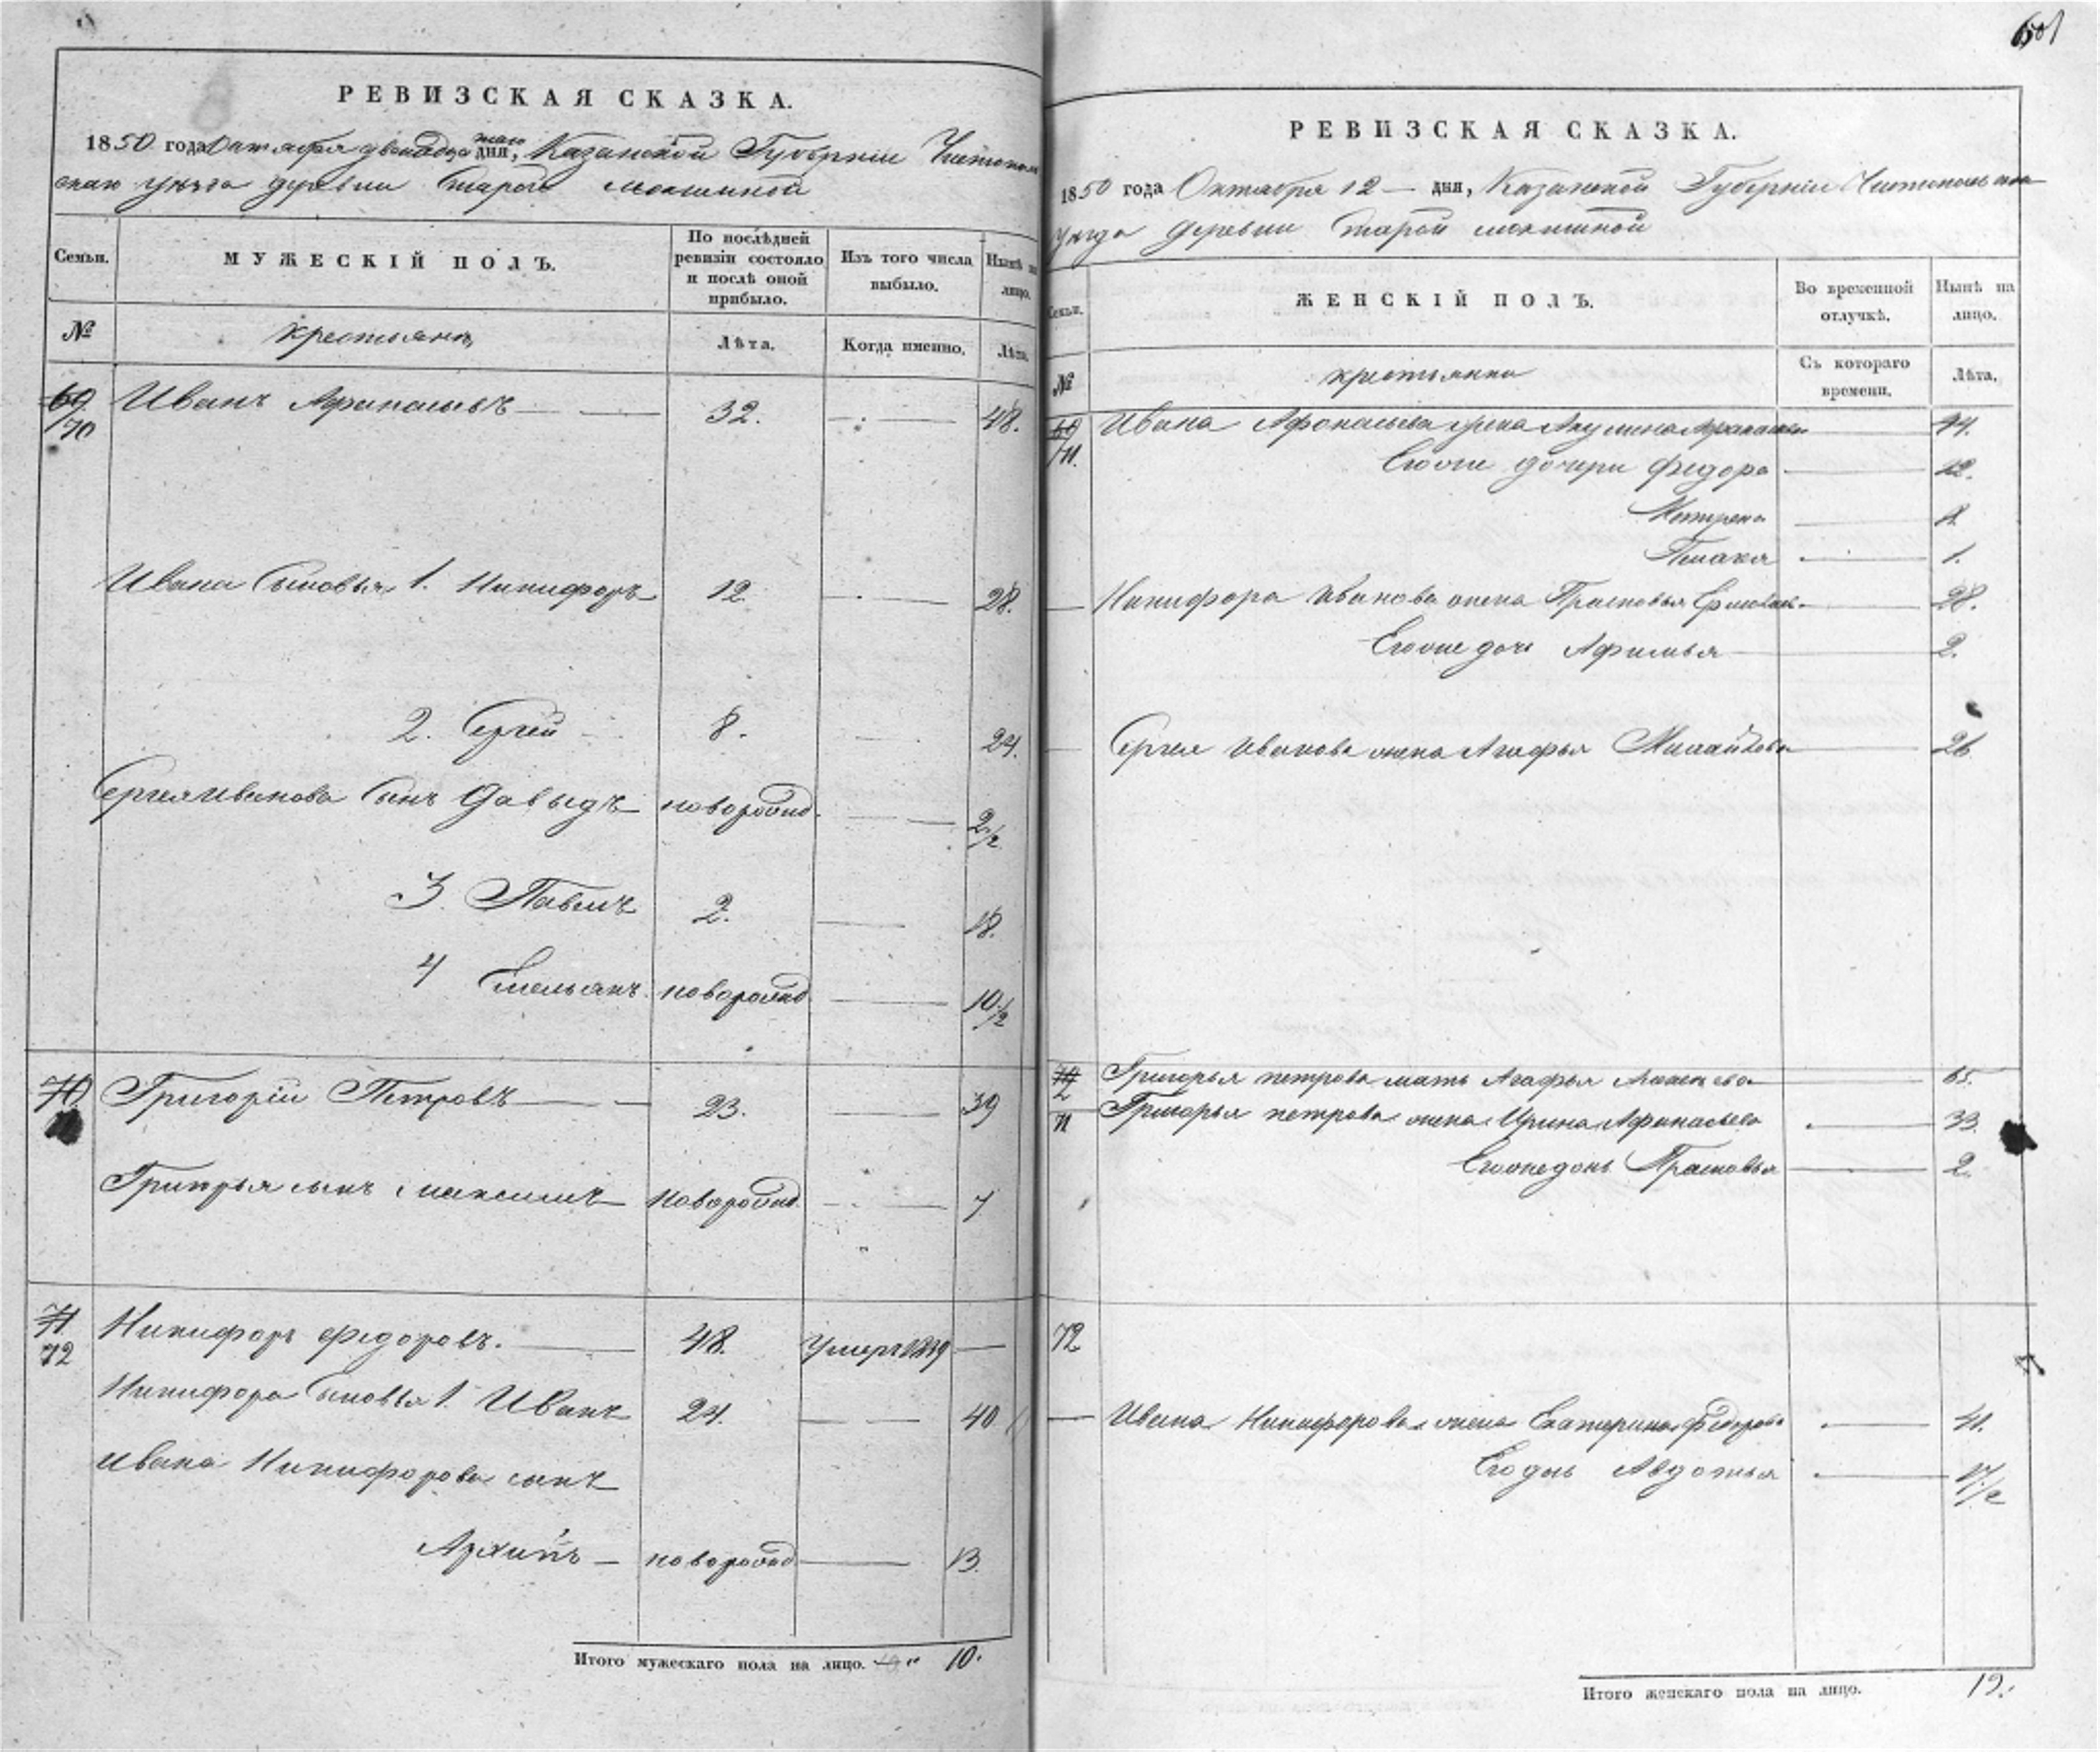 РЕВИЗСКАЯ СКАЗКА.
1850 года Октября двенадца
таго
дня, Казанской Губерніи Чистополь
скаго уѣзда деревни Старой Мокшиной
Семьи.
МУЖЕСКІЙ ПОЛЪ.
По послѣдней
ревизіи состояло
и послѣ оной
прибыло.
Изъ того числа
выбыло.
Нынѣ на
лицо.
№
крестьянъ
Лѣта.
Когда именно.
Лѣта.
69
70
Иванъ Афанасьевъ 32. 48.
Ивана сыновья 1. Никифоръ 12. 28.
2. Сергей 8. 24.
Сергея Иванова сынъ Давыдъ новорожд. 2 1/2
3. Павелъ 2. 18.
4 Емельянъ новорожд 10 1/2
70.
Григорій Петровъ 23. 39
Григорья сынъ Максимъ новорожд. 7
71
72
Никифоръ Федоровъ. 48. умеръ 1849
Никифора сыновья 1. Иванъ 24. 40
Ивана Никифорова сынъ
Архипъ новорожд 13.
Итого мужескаго пола на лицо. 10.
601
РЕВИЗСКАЯ СКАЗКА.
1850 года Октября 12 дня, Казанской Губерніи Чистопольска
уѣзда деревни Старой Мокшиной
Семьи.
ЖЕНСКІЙ ПОЛЪ.
Во временной
отлучкѣ.
Нынѣ на
лицо.
№
крестьянки
Съ котораго
времени.
Лѣта.
69
Ивана Афонасьева жена Акулина Афанасьева 44.
Егоже дочери Федора 12.
Матрена
1.
Никифора Иванова жена Прасковья 28.
Егоже дочь Афимья 2.
Сергея Иванова жена Агафья 26
Григорья Петрова мать Агафья 65.
71
Григорья Петрова жена Ирина Афанасьева 33.
Егоже дочь Прасковья 2.
72
Ивана Никифорова жена Екатерина Федорова 41.
Его дочь Авдотья
Итого женскаго пола на лицо. 12.